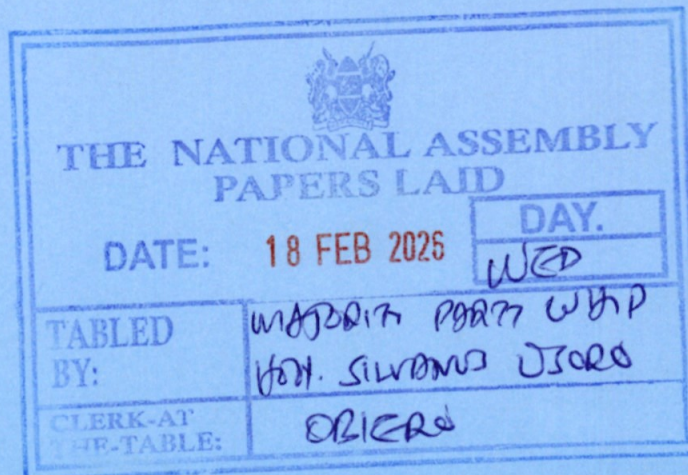 THE NATIONAL ASSEMBLY
PAPERS LAID
DATE: 18 FEB 2026
DAY.
WED
TABLED BY: MAJORITY PARTY WHIP
HON. SILVANUS OSORO
CLERK-AT THE-TABLE: OBIERO